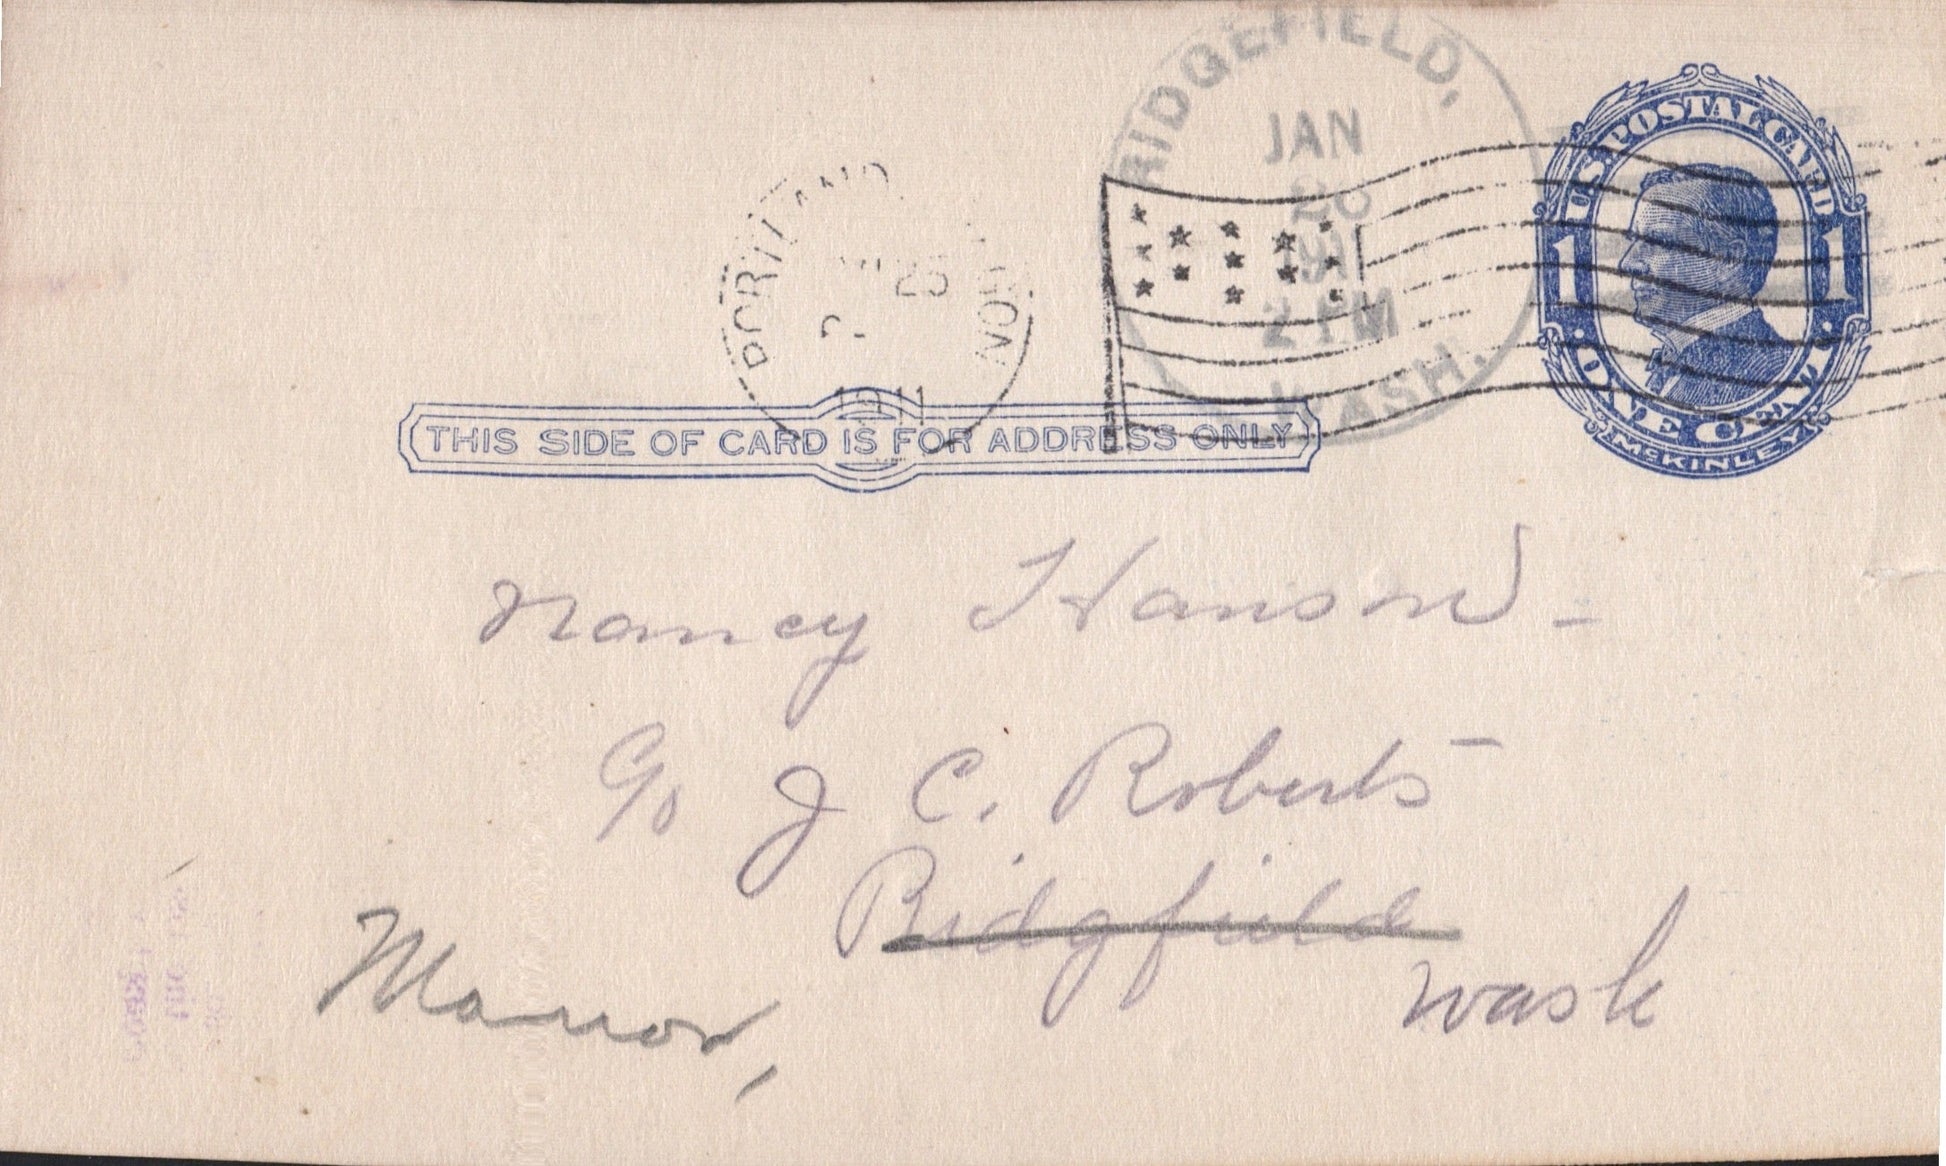 RIDGEFIELD,
JAN
26
191
2 PM
WASH.
U.S. POSTAL CARD
1 1
ONE CENT
McKINLEY
PORTLAND
25
1911
THIS SIDE OF CARD IS FOR ADDRESS ONLY
Nancy Hanson -
c/o J C. Roberts -
Ridgfield
Wash
Manor,